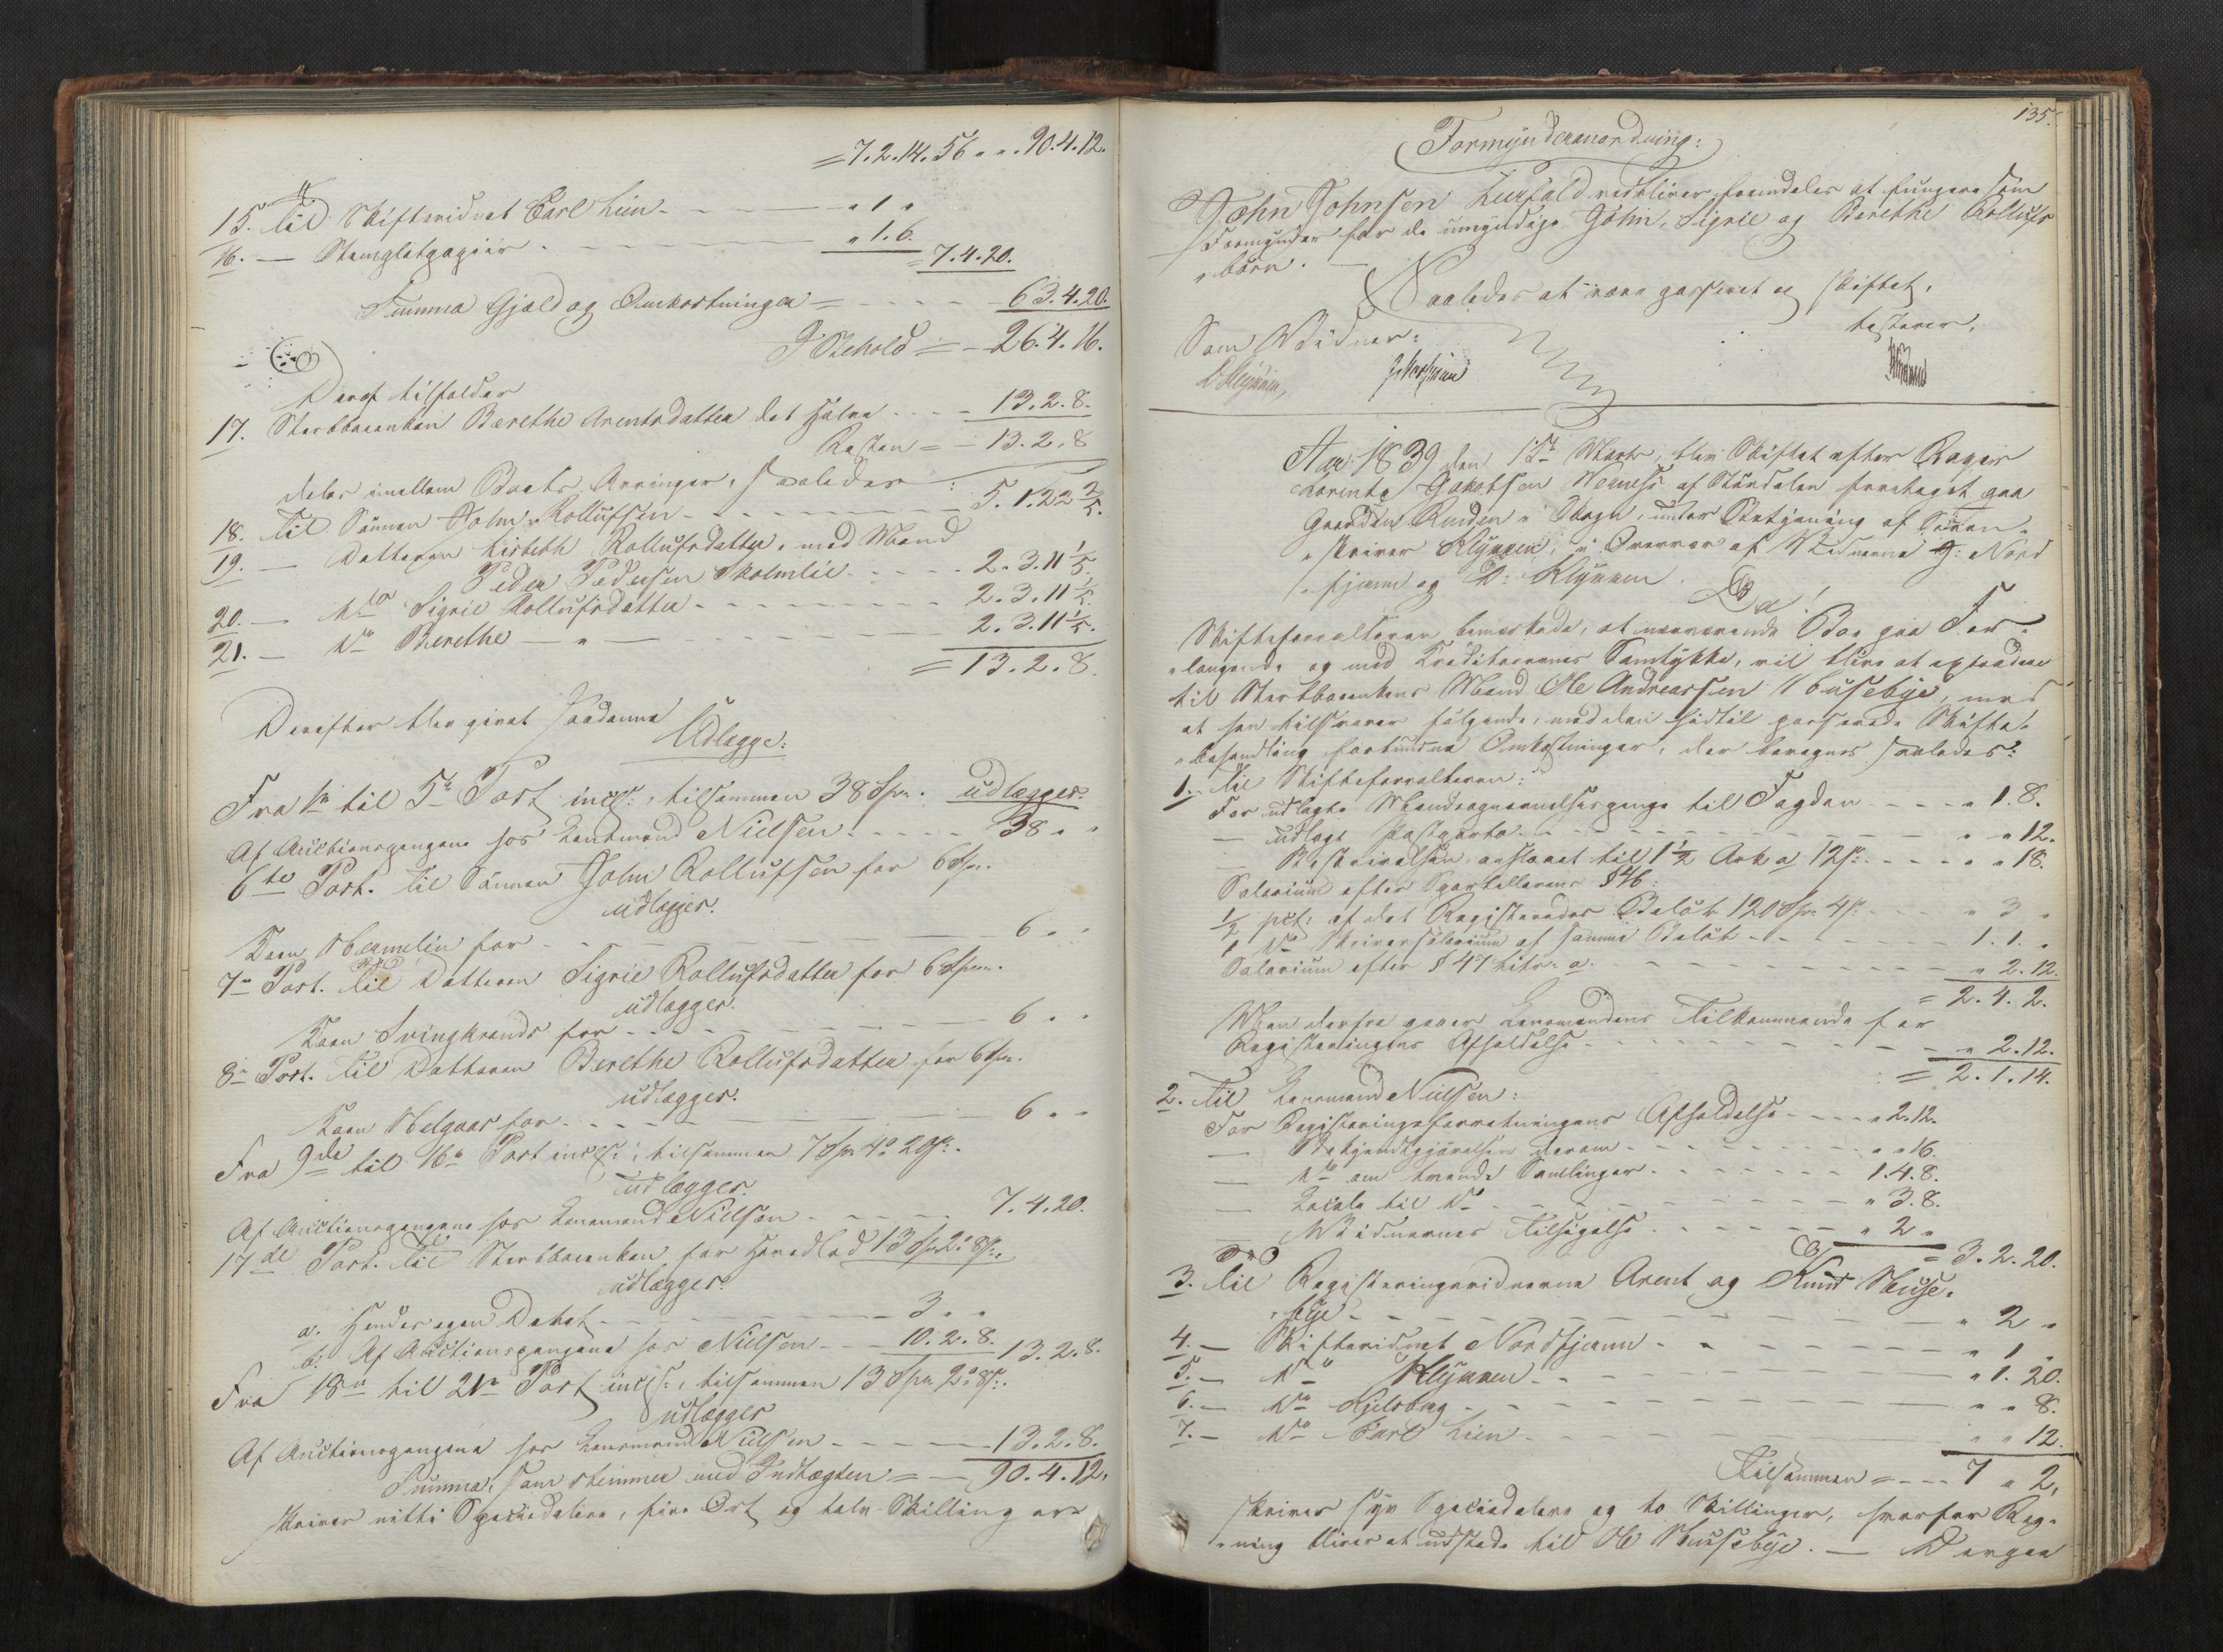 = 7.2.14. 56 „ „ 90.4.12.
15. Til Skifteridnet Carl Lien - - „ 1 „
16. — Stempletpapiir - - „ 1. 6.
= 7.4.20.
Summa Gjæld og Omkostninger = - - - - 63.4.20.
I Behold = - 26.4.16.
Deraf tilfalder
17. Sterbboenken Berethe Arentsdatter det halve - - - - 13.2.8.
Resten = - 13.2.8
deles imellem Boets Arvinger, saaledes:
18. Til Sønnen John Rollufsen - - - - 5.1.22 2/5.
19. — Datteren Lisbeth Rollufsdatter, med Mand
Peder Pedersen Skolmlie - - - - 2.3.11 1/5.
20. — do Sigrie Rollufsdatter - - - - 2.3.11 1/5.
21. — do Berethe — „ — - - - - 2.3.11 1/5.
= 13.2.8.
Derefter blev givet saadanne
Udlægge:
Fra 1te til 5te Post incl:, tilsammen 38 Spd. udlægges.
Af Auctionspengene hos Lensmand Nielsen - - - - 38 „ „
6te Post. Til Sønnen John Rollufsen for 6 Spd.
udlægges.
Koen for - - 6 „ „
7de Post. Til Datteren Sigrie Rollufsdatter for 6 Spd.
udlægges.
Koen Svingkrands for - - - - 6 „ „
8de Post. Til Datteren Berethe Rollufsdatter for 6 Spd.
udlægges.
Koen Helgaas for - - - - 6 „ „
Fra 9de til 16de Post incl:, tilsammen 7 Spd 4 ort 20 s.
udlægges.
Af Auctionspengene hos Lensmand Nielsen - - - - 7.4.20.
17de Post. Til Sterbboenken for Hovedlod 13 Spd 2 ort 8 s.
udlægges.
a. Hendes egen Debet - - - - 3 „ „
b. Af Auctionspengene hos Nielsen - - - 10.2.8. 13.2.8.
Fra 18de til 21de Post incl:, tilsammen 13 Spd 2 ort 8 s.
udlægges
Af Auctionspengene hos Lensmand Nielsen - - - - 13.2.8.
Summa, som stemmer med Indtægten = — 90.4.12.
skriver nitti Speciedalere, fire Ort og tolv Skilling ere
135.
Formynderanordning:
John Johnsen vedbliver fremdeles at fungere som
Formynder for de umyndige John, Sigrie og Berethe Rollufs
„børn. —
Saaledes at være passeret og skiftet,
testerer,
Som Vidner:
D Klykken,
Aar 1839 den 1ste Marts, blev Skiftet efter Karen
Jakobsen af Størdalen foretaget paa
Gaarden Renden i Skogn, under Betjening af Soren-
„skriver Klykken, i Overvær af Vidnerne J: Nord
„fjærn og D: Klykken.
Da!
Skifteforvalteren bemærkede, at nærværende Boe paa For-
„langende og med Creditorernes Samtykke, vil blive at extradere
til Sterbboenkens Mand Ole Andreassen Husebye, mod
at han tilsvarer følgende, med den hidtil passerede Skifte-
„behandling forbundne Omkostninger, der beregnes saaledes:
1. Til Skifteforvalteren:
For udlagte til Fogden - - - - „ 1. 8.
— udlagt Postporto - - - - „ „ 12.
— Beskrivelsen, anslaaet til 1½ Ark a 12 s. - - - - „ „ 18.
Salarium efter Sportellovens § 46:
½ pCt: af det Registerede Beløb 120 Spd 4 s. - - - „ 3 „
1 do Skriversalarium af samme Beløb - - - - 1. 1. „
Salarium efter § 47 Litr: a. - - - - „ 2. 12.
= 2. 4. 2.
Men derfra gaaer Lensmandens Tilkommende for
Registeringens Afholdelse - - - - „ 2.12.
= 2.1.14.
2. Til Lensmand Nielsen:
For Registeringsforretningens Afholdelse - - - „ 2.12.
— Bekjendtgjørelsen derom - - - - „ „ 16.
— do om trende Samlinger - - - - 1.4.8.
— Locale til do - - - - „ 3.8.
— Vidnernes Tilsigelse - - - - „ 2 „
= 3.2.20.
3. Til Registeringsvidnerne Arent og Knud Huse-
„bye - - - - „ 2 „
4. — Skiftevidnet Nordfjærn - - - - „ 1 „
5. — do Klykken - - - - „ 1. 20.
6. — do Kjelsberg - - - - „ „ 8.
7. — do Carl Lien - - - - „ „ 12.
Tilsammen = - - - 7 „ 2,
skriver syv Speciedalere og to Skillinger, hvorfor Reg-
„ning bliver at udstede til Ole Husebye. — Derpaa